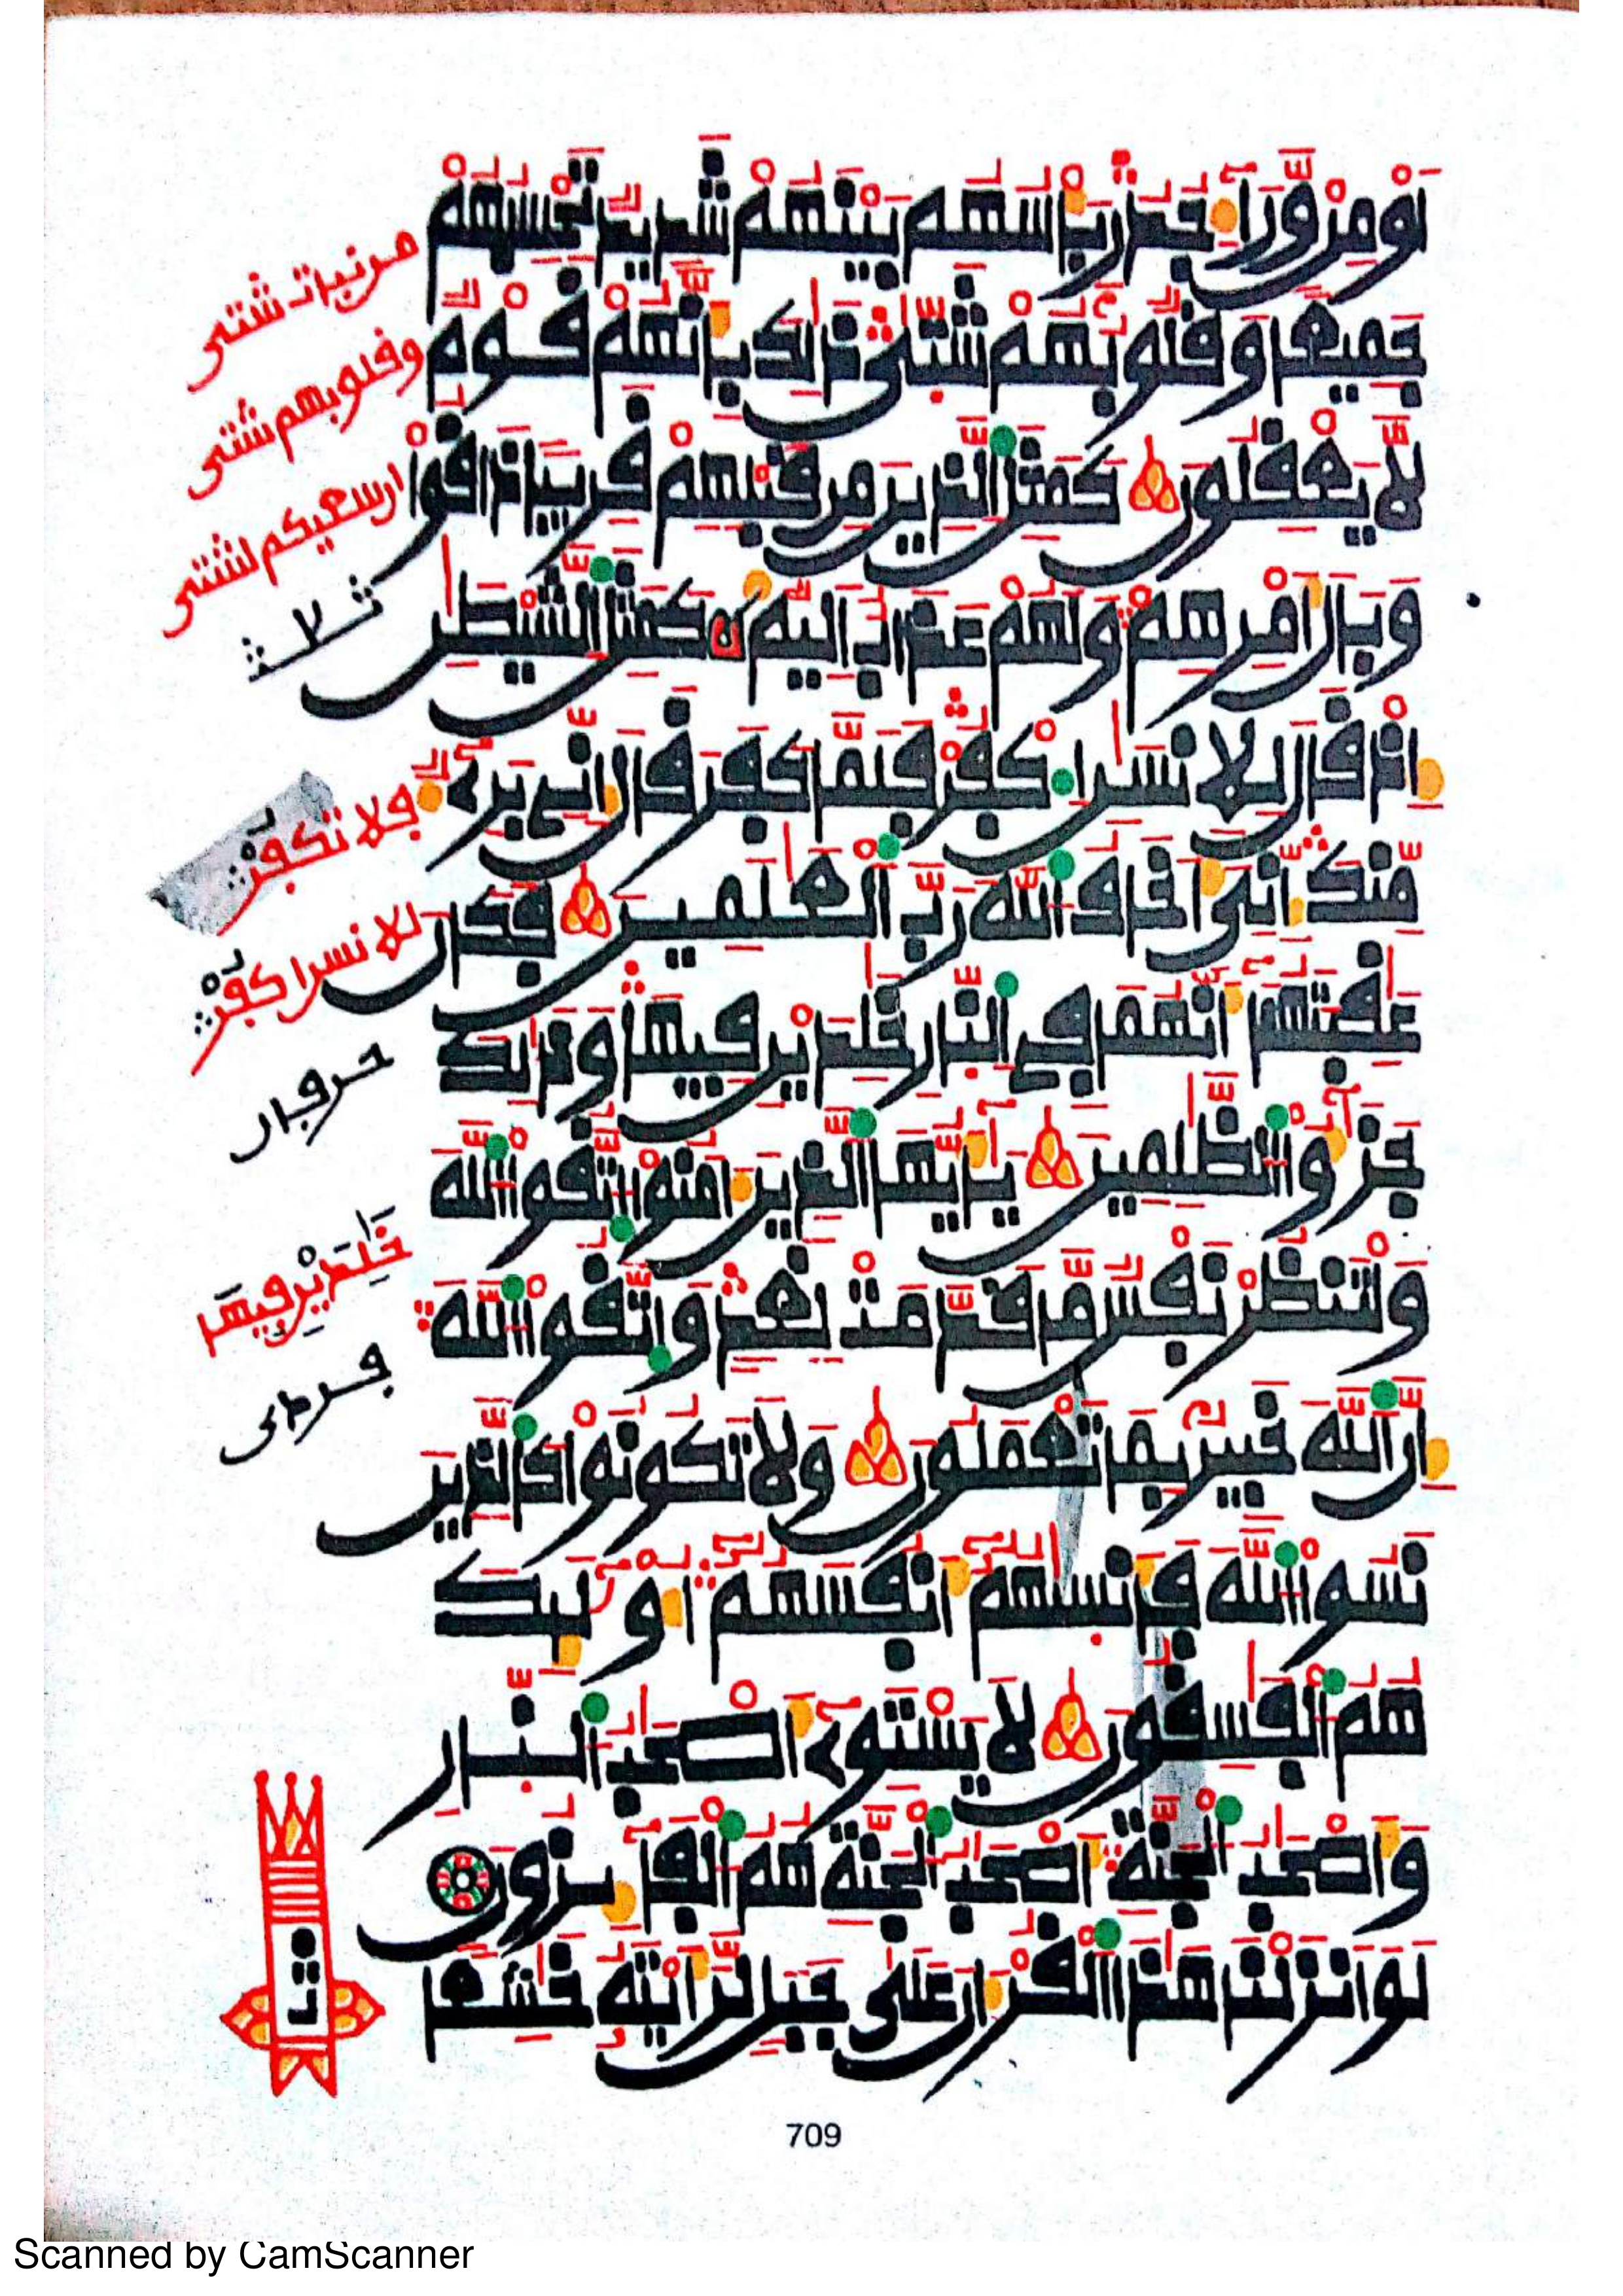 أو من وراء جدر بأسهم بينهم شديد تحسبهم
جميعا وقلوبهم شتى ذلك بأنهم قوم
لا يعقلون كمثل الذين من قبلهم قريبا ذاقوا
وبال أمرهم ولهم عذاب أليم كمثل الشيطن
إذ قال للإنسن اكفر فلما كفر قال إني بريء
منك إني أخاف الله رب العلمين فكان
عقبتهما أنهما في النار خلدين فيها وذلك
جزؤا الظلمين يأيها الذين ءامنوا اتقوا الله
ولتنظر نفس ما قدمت لغد واتقوا الله
إن الله خبير بما تعملون ولا تكونوا كالذين
نسوا الله فأنسيهم أنفسهم أولئك
هم الفسقون لا يستوي أصحب النار
وأصحب الجنة أصحب الجنة هم الفائزون
لو أنزلنا هذا القرءان على جبل لرأيته خشعا
من نبات شتى
وقلوبهم شتى
إن سعيكم لشتى
ثلاث
فلا تكفر
للانسن اكفر
حرفان
خلدين فيها
709
Scanned by CamScanner